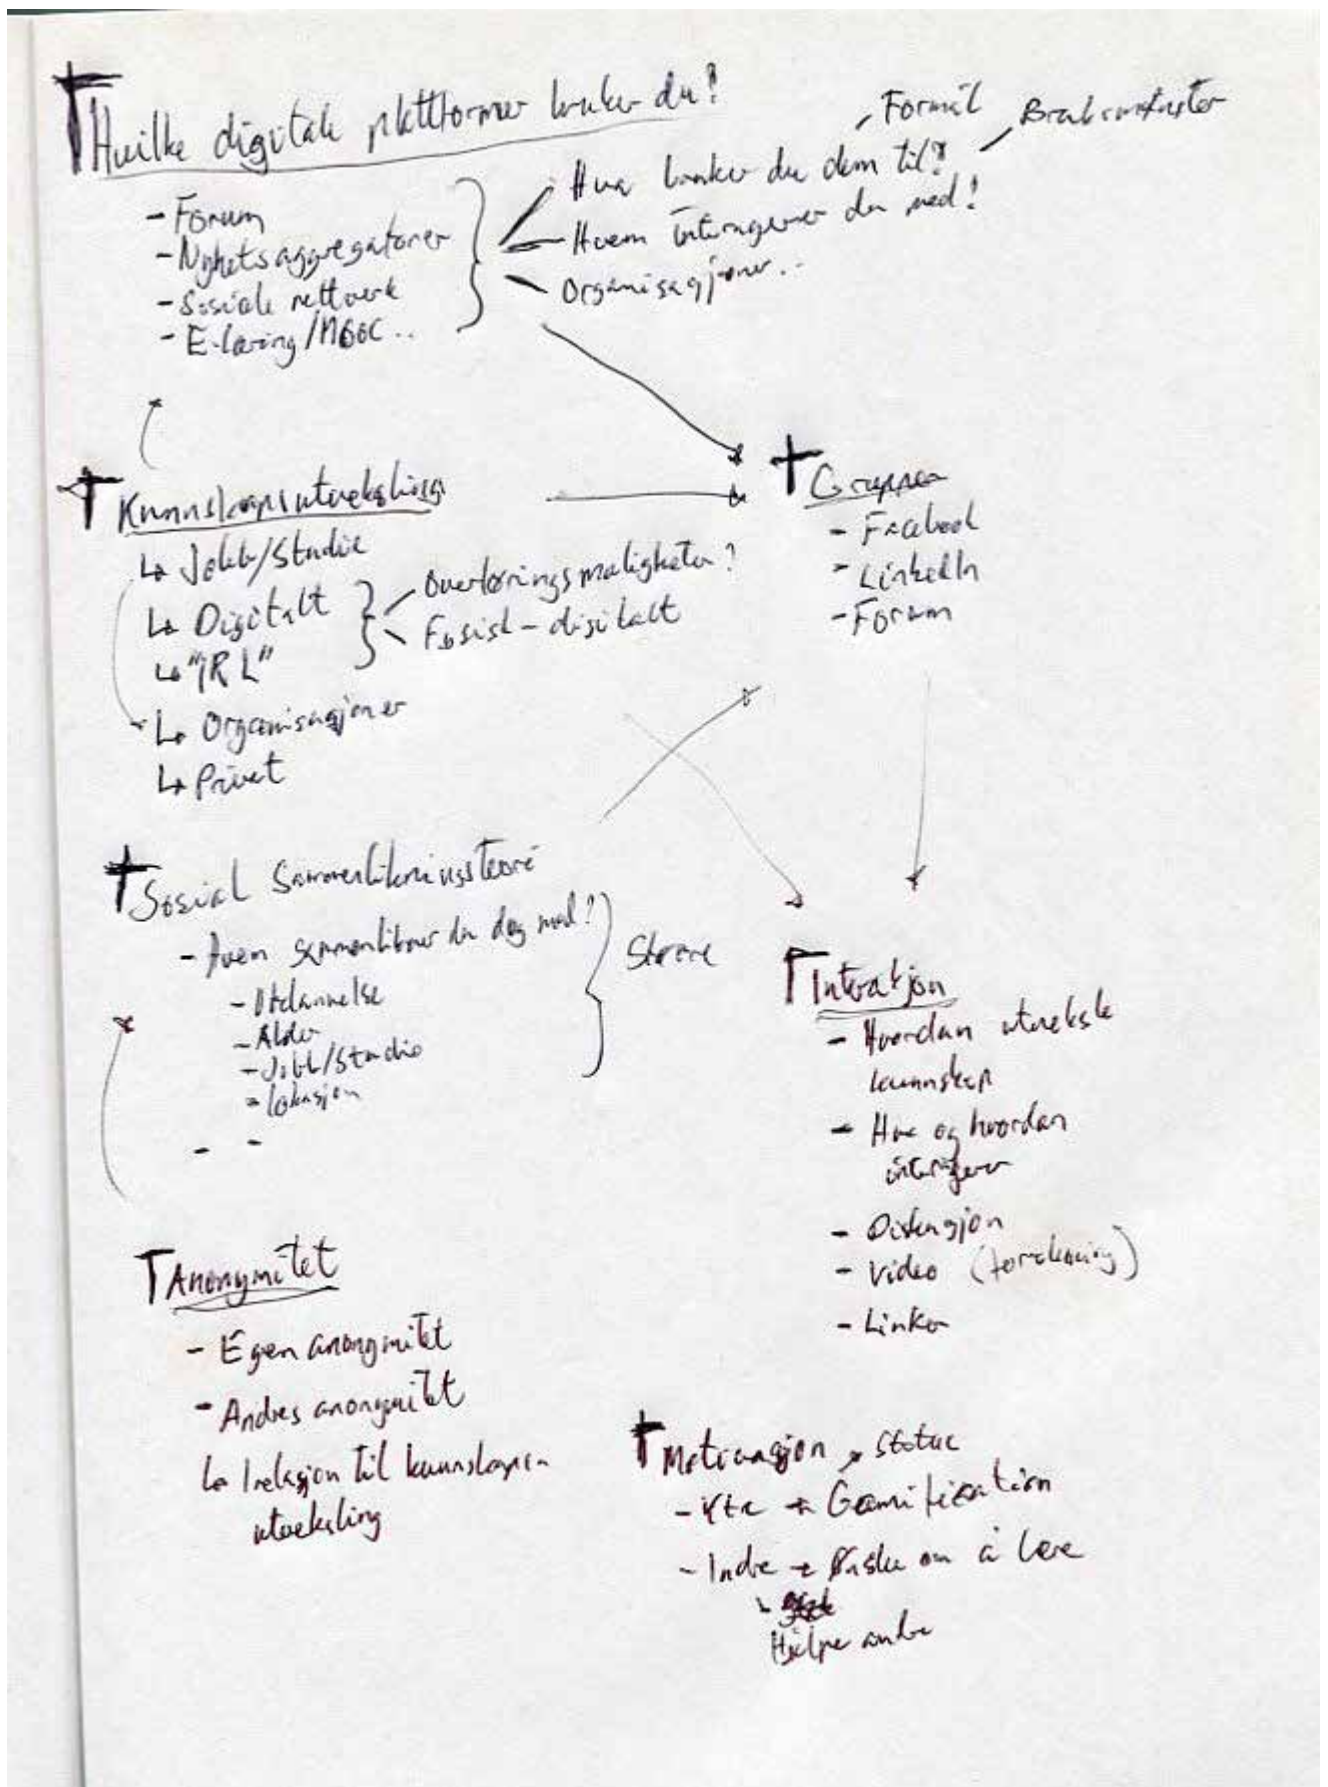 Hvilke digitale plattformer bruker du?
- Forum
- Nyhetsaggregatorer
- Sosiale nettverk
- E-læring/MOOC..
Formål
Bruksmønster
Hva bruker du dem til?
Hvem interagerer du med?
Organisasjoner..
Kunnskapsutveksling
↳ Jobb/Studie
↳ Digitalt
↳ "IRL"
↳ Organisasjoner
↳ Privat
Overføringsmuligheter?
Fysisk - digitalt
Grupper
- Facebook
- LinkedIn
- Forum
Sosial Sammenlikningsteori
- Hvem sammenlikner du deg med?
- Utdannelse
- Alder
- Jobb/Studie
- Lokasjon
- -
Større
Interaksjon
- Hvordan utveksle
kunnskap
- Hva og hvordan
interagerer
- Diskusjon
- Video (forelesning)
- Linker
Anonymitet
- Egen anonymitet
- Andres anonymitet
↳ I relasjon til kunnskaps-
utveksling
Motivasjon , status
- Ytre → Gamification
- Indre → Ønske om å lære
Hjelpe andre